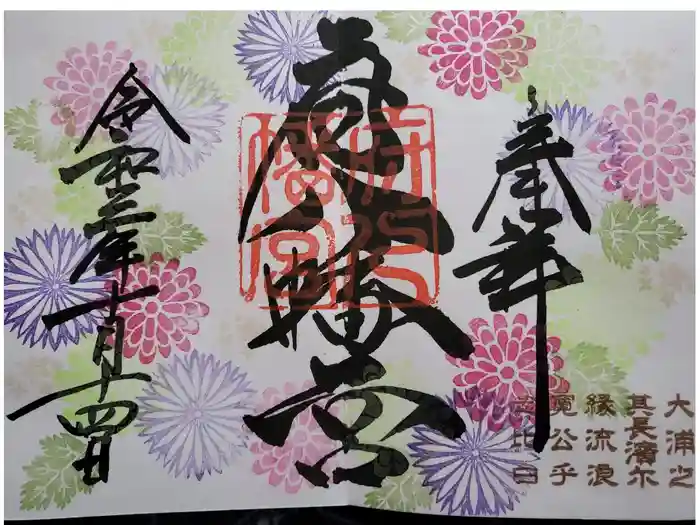 奉拝
大浦之
其長濱尓
縁流浪
寛公乎
念比日
府八幡宮
府八
幡宮
令和三年十月十四日